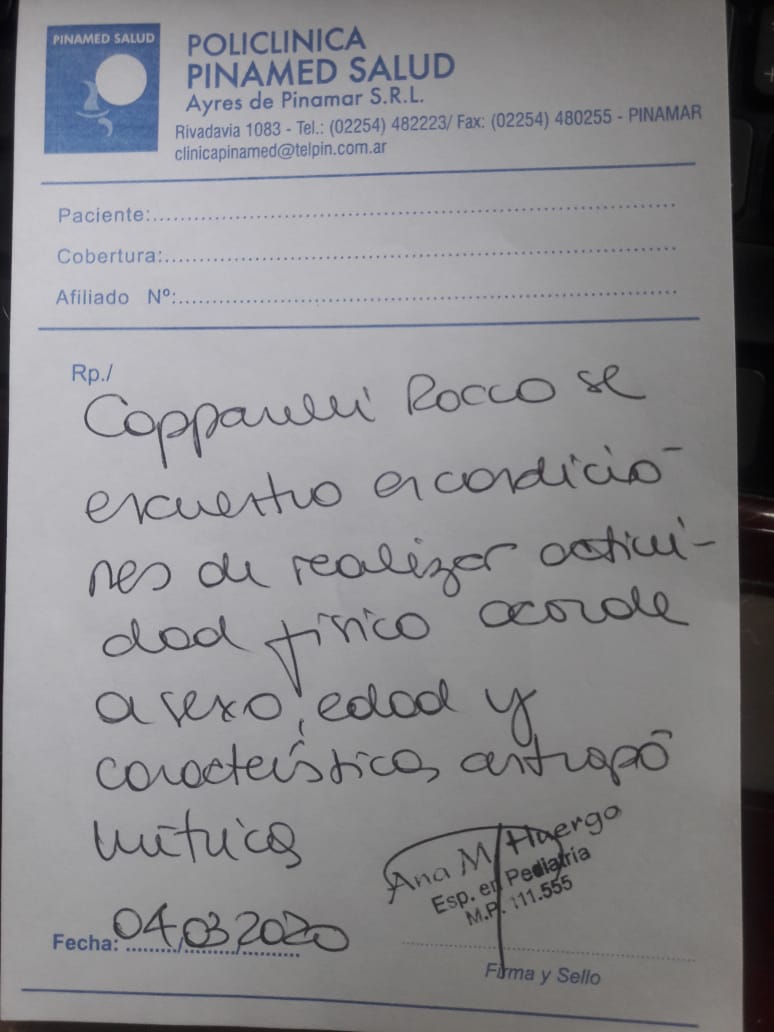 PINAMED SALUD
POLICLINICA
PINAMED SALUD
Ayres de Pinamar S.R.L.
Rivadavia 1083 - Tel.: (02254) 482223/ Fax: (02254) 480255 - PINAMAR
clinicapinamed@telpin.com.ar
Paciente:
Cobertura:
Afiliado Nº:
Rp./
Rocco se
encuentra en condicio-
nes de realizar activi-
dad física acorde
a sexo, edad y
características antropo
métricas
Ana M. Huergo
Esp. en Pediatría
M.P. 111.555
Fecha: 04,03,2020
Firma y Sello